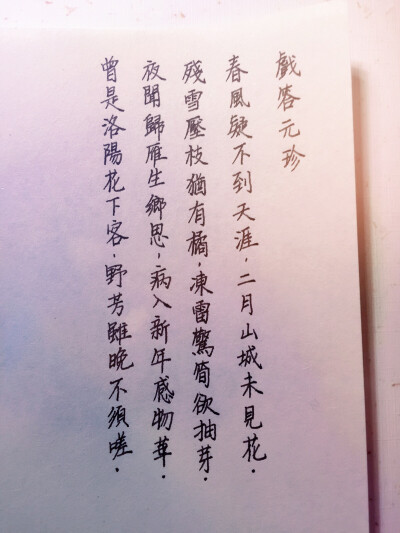 戲答元珍
春風疑不到天涯,二月山城未見花.
殘雪壓枝猶有橘,凍雷驚筍欲抽芽.
夜聞歸雁生鄉思,病入新年感物華.
曾是洛陽花下客,野芳雖晚不須嗟.